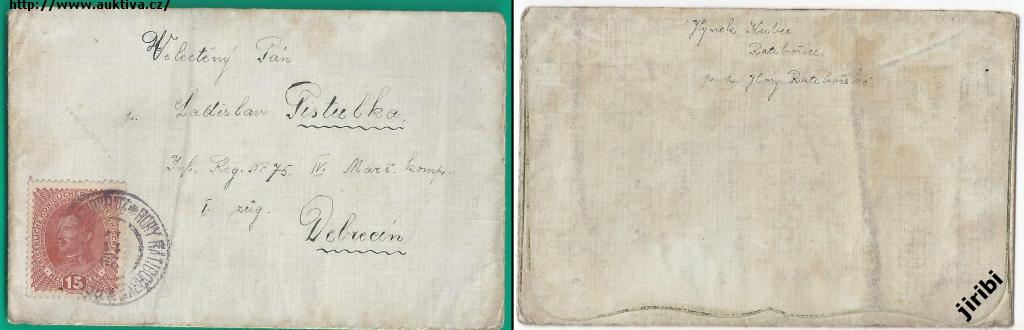 http://www.auktiva.cz/
Velectěný Pán
p. Ladislav Pistulka,
Inf. Reg. No 75. IV. Marš. komp.
I. zug.
Debrecín
15
HORY RATIBOŘ
Hynek Kubec
Ratibořice.
p. p. Hory Ratibořské.
jiribi